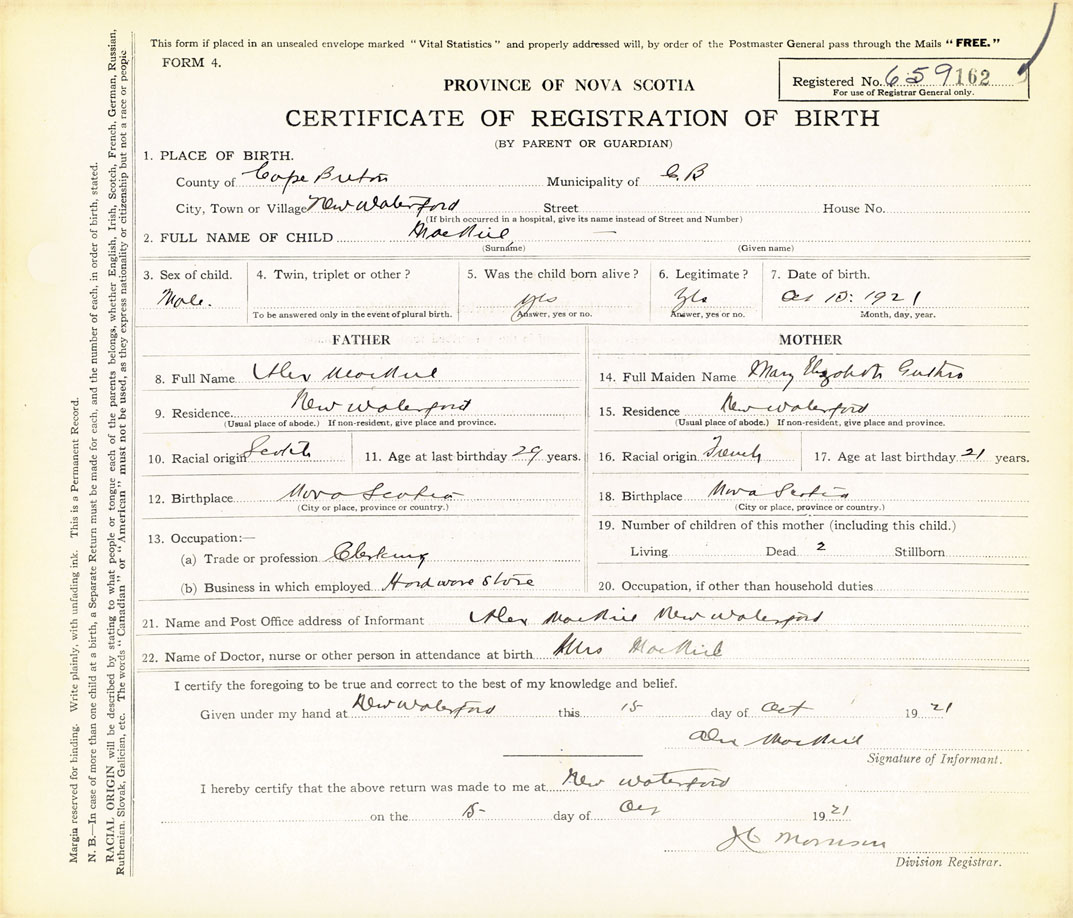 This form if placed in an unsealed envelope marked "Vital Statistics" and properly addressed will, by order of the Postmaster General pass through the Mails "FREE."
FORM 4.
Registered No. 659162
For use of Registrar General only.
PROVINCE OF NOVA SCOTIA
CERTIFICATE OF REGISTRATION OF BIRTH
(BY PARENT OR GUARDIAN)
1. PLACE OF BIRTH.
County of Cape Breton Municipality of C. B
City, Town or Village New Waterford Street House No.
(If birth occurred in a hospital, give its name instead of Street and Number)
2. FULL NAME OF CHILD MacNeil —
(Surname) (Given name)
3. Sex of child. 4. Twin, triplet or other? 5. Was the child born alive? 6. Legitimate? 7. Date of birth.
Male. yes Yes 1921
To be answered only in the event of plural birth. Answer, yes or no. Answer, yes or no. Month, day, year.
FATHER MOTHER
8. Full Name Alex MacNeil 14. Full Maiden Name Mary Elizabeth
9. Residence New Waterford 15. Residence New Waterford
(Usual place of abode.) If non-resident, give place and province. (Usual place of abode.) If non-resident, give place and province.
10. Racial origin Scotch 11. Age at last birthday 29 years. 16. Racial origin French 17. Age at last birthday 21 years.
12. Birthplace Nova Scotia 18. Birthplace Nova Scotia
(City or place, province or country.) (City or place, province or country.)
13. Occupation:— 19. Number of children of this mother (including this child.)
(a) Trade or profession Clerking Living Dead 2 Stillborn
(b) Business in which employed Hardware Store 20. Occupation, if other than household duties
21. Name and Post Office address of Informant Alex MacNeil New Waterford
22. Name of Doctor, nurse or other person in attendance at birth Mrs MacNeil
I certify the foregoing to be true and correct to the best of my knowledge and belief.
Given under my hand at New Waterford this 15 day of Oct 1921
Alex MacNeil
Signature of Informant.
I hereby certify that the above return was made to me at New Waterford
on the 15 day of Oct 1921
Morrison
Division Registrar.
Margin reserved for binding. Write plainly, with unfading ink. This is a Permanent Record.
N. B.—In case of more than one child at a birth, a Separate Return must be made for each, and the number of each, in order of birth, stated.
RACIAL ORIGIN will be described by stating to what people or tongue each of the parents belongs, whether English, Irish, Scotch, French, German, Russian,
Ruthenian, Slovak, Galician, etc. The words "Canadian" or "American" must not be used, as they express nationality or citizenship but not a race or people